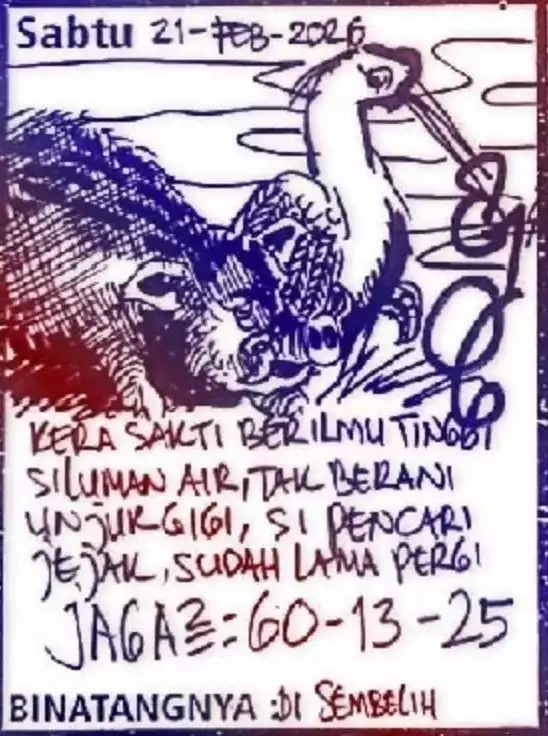 Sabtu 21-FEB-2026
KERA SAKTI BERILMU TINGGI
SILUMAN AIR, TAK BERANI
UNJUK GIGI, SI PENCARI
JEJAK, SUDAH LAMA PERGI
JAGA2=: 60-13-25
BINATANGNYA :DI SEMBELIH